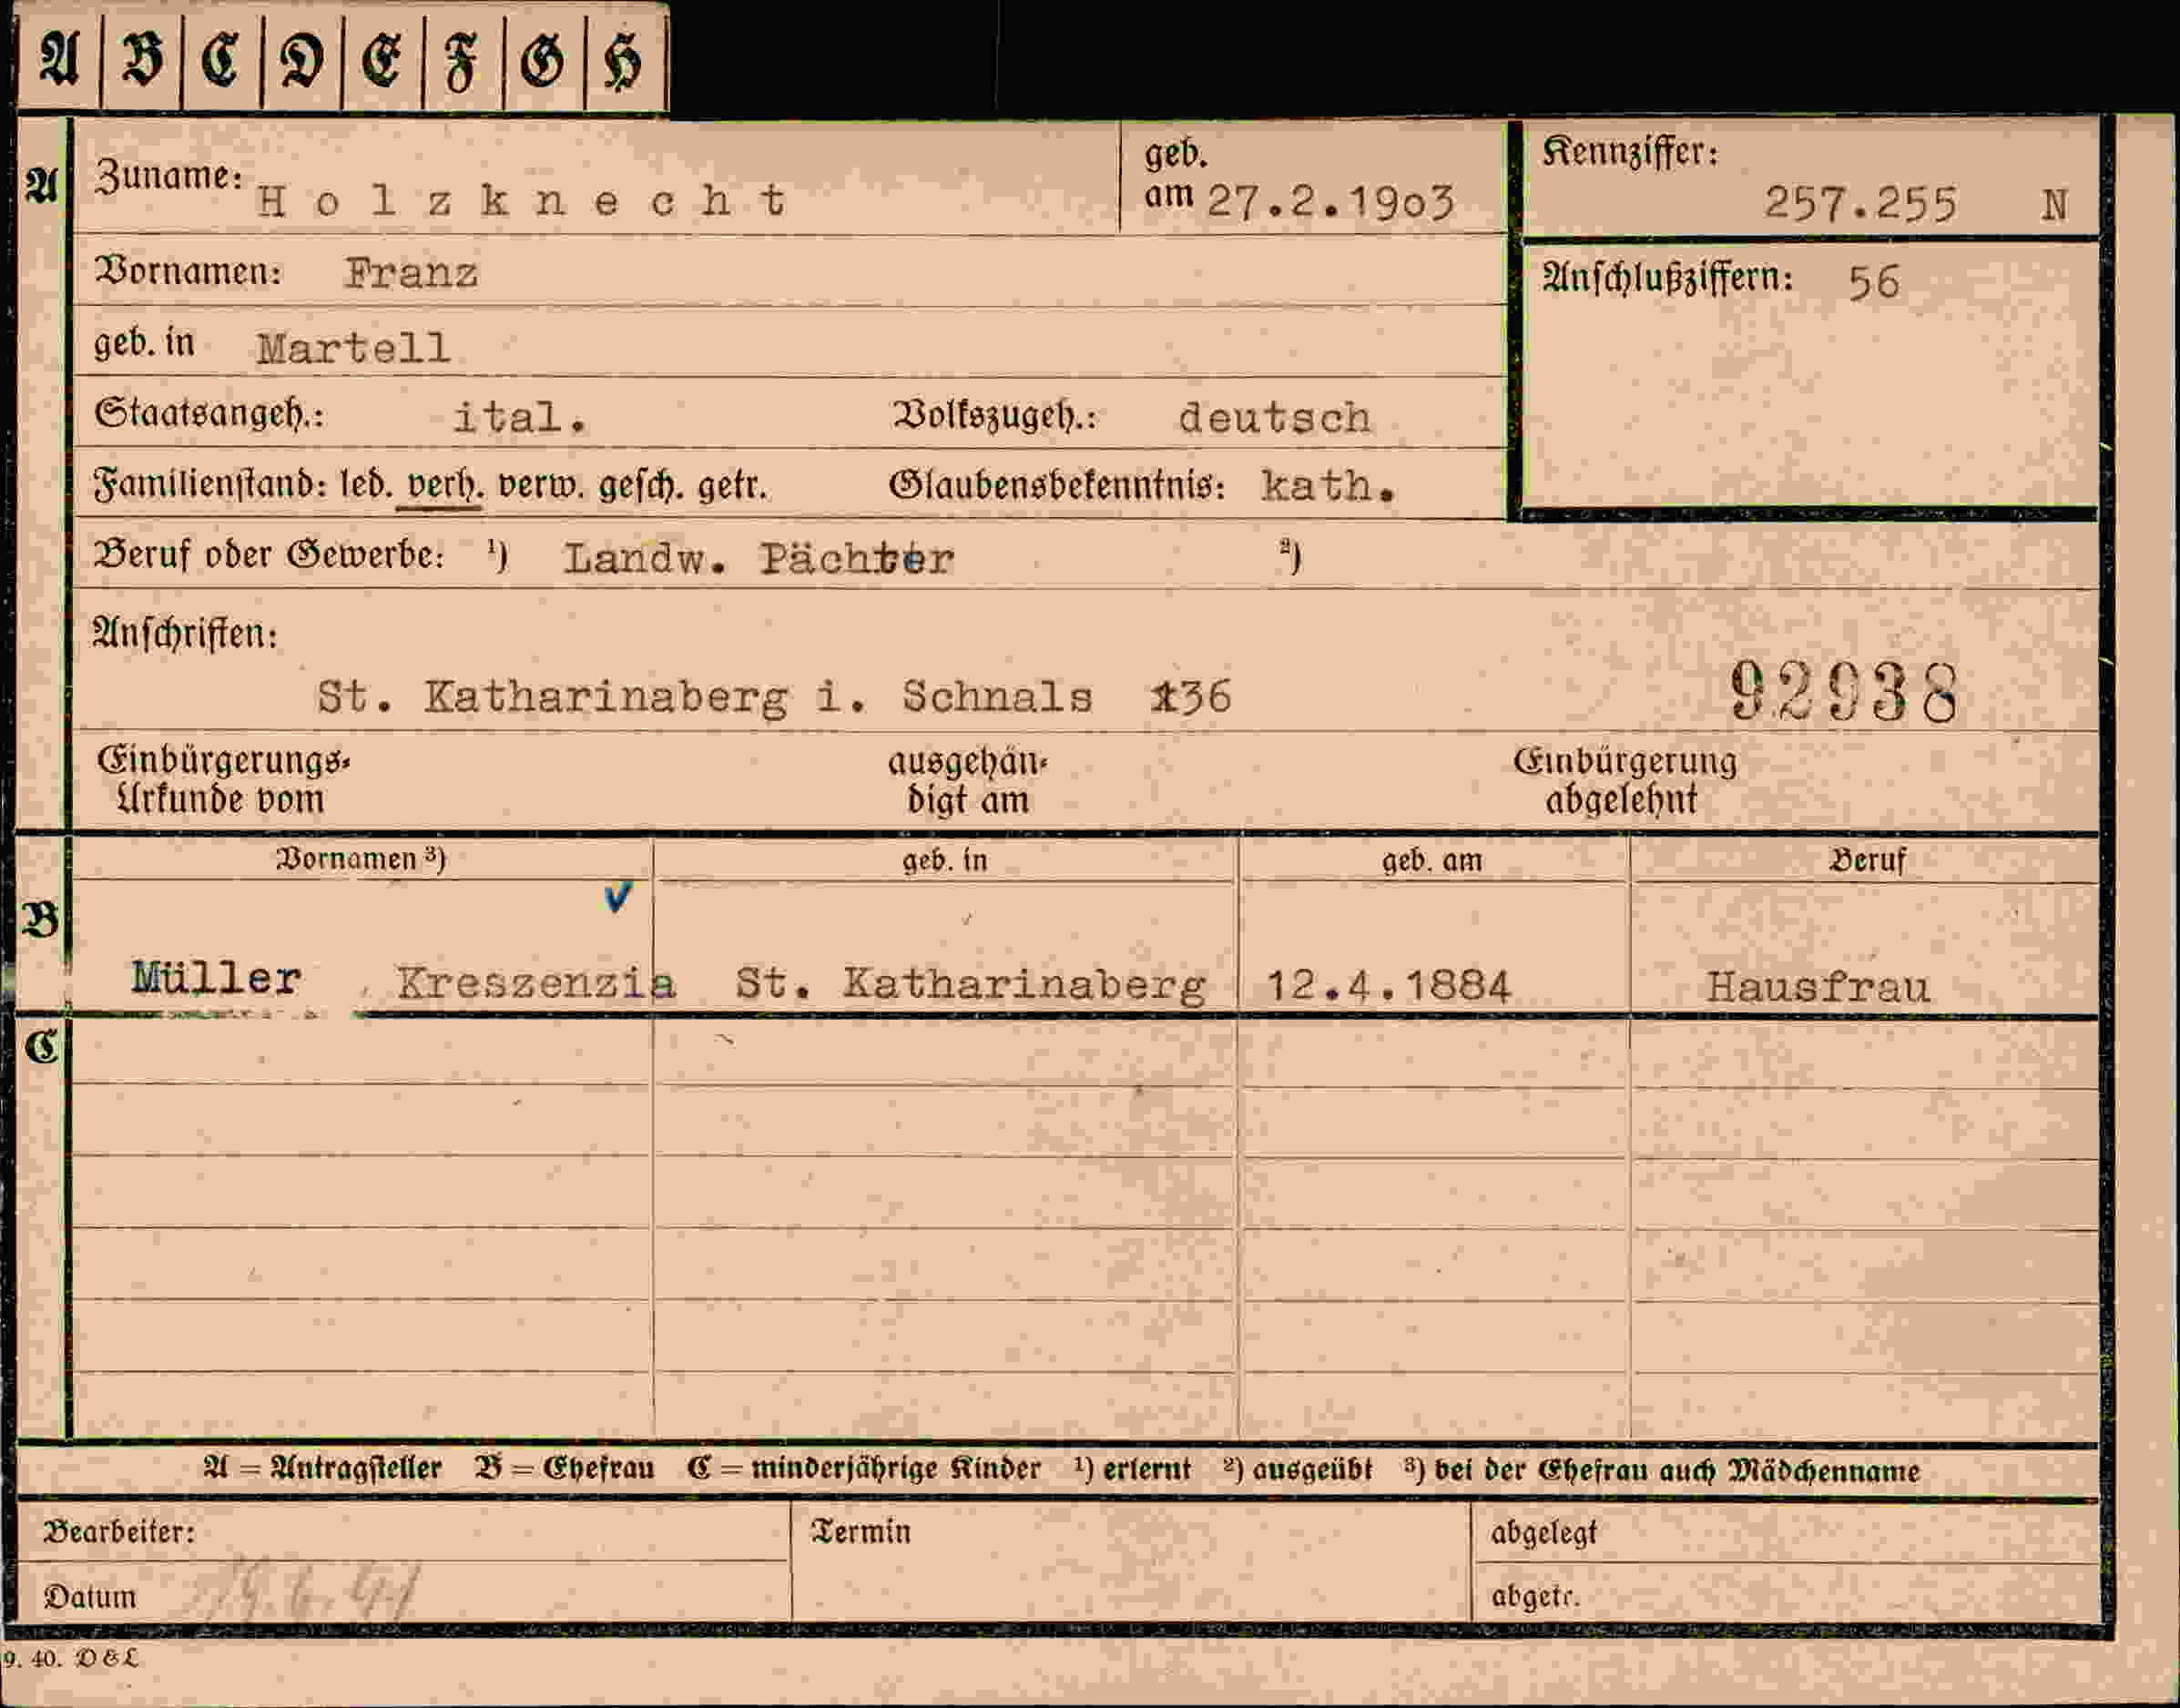 A B C D E F G H
A Zuname: Holzknecht geb. am 27.2.19o3 Kennziffer: 257.255 N
Vornamen: Franz Anschlußziffern: 56
geb. in Martell
Staatsangeh.: ital. Volkszugeh.: deutsch
Familienstand: led. verh. verw. gesch. getr. Glaubensbekenntnis: kath.
Beruf oder Gewerbe: ¹) Landw. Pächter ²)
Anschriften:
St. Katharinaberg i. Schnals 136 92938
Einbürgerungs- ausgehän- Einbürgerung
Urkunde vom digt am abgelehnt
Vornamen ³) geb. in geb. am Beruf
B
Müller Kreszenzia St. Katharinaberg 12.4.1884 Hausfrau
C
A = Antragsteller B = Ehefrau C = minderjährige Kinder ¹) erlernt ²) ausgeübt ³) bei der Ehefrau auch Mädchenname
Bearbeiter: Termin abgelegt
Datum 19.6.41 abgetr.
9. 40. D & L